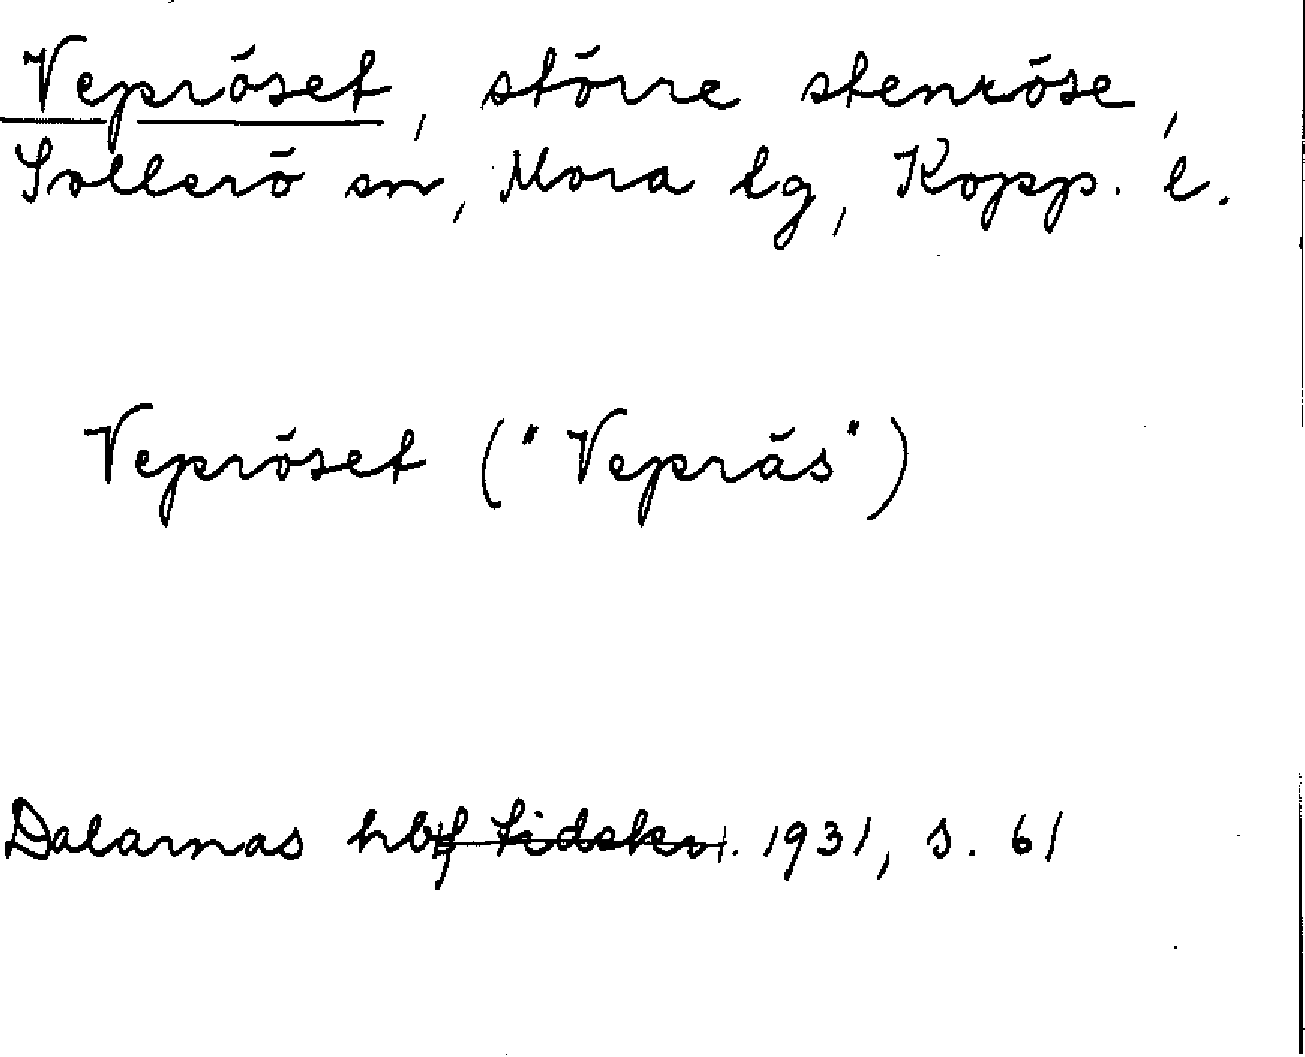 Vepröset, större stenröse,
Sollerö sn, Mora lg, Kopp. l.
Vepröset ("Vepräs")
Dalarnas hbf tidskr. 1931, s. 61